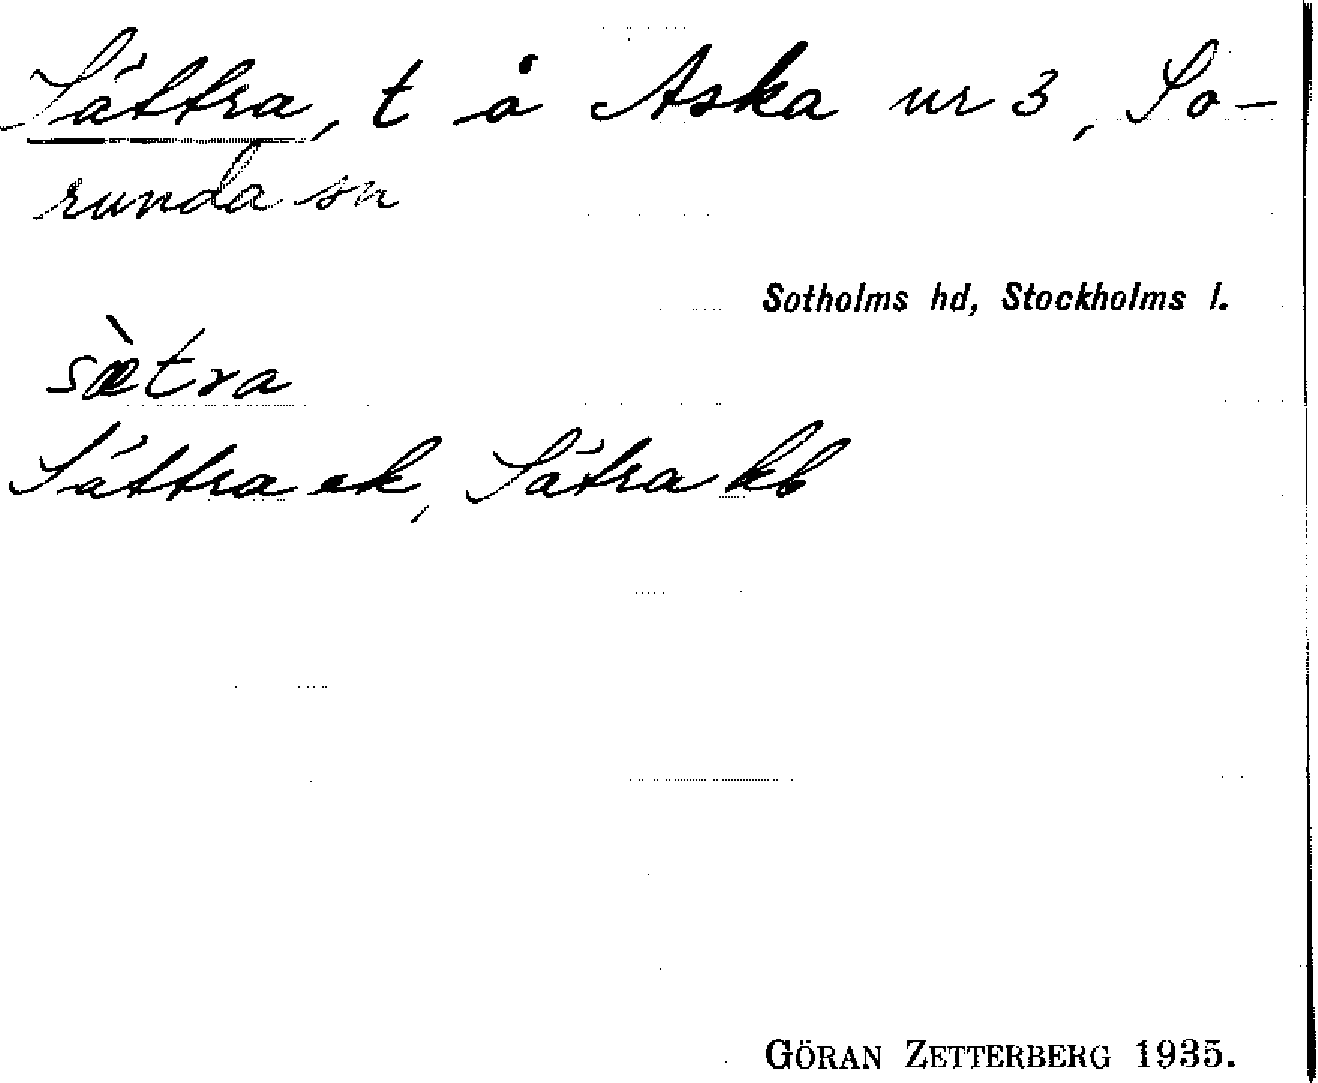 Sättra, t å Aska nr 3, So-
runda sn
Sotholms hd, Stockholms l.
sæ̀tra
Sättra ek, Sätra kb
GÖRAN ZETTERBERG 1935.